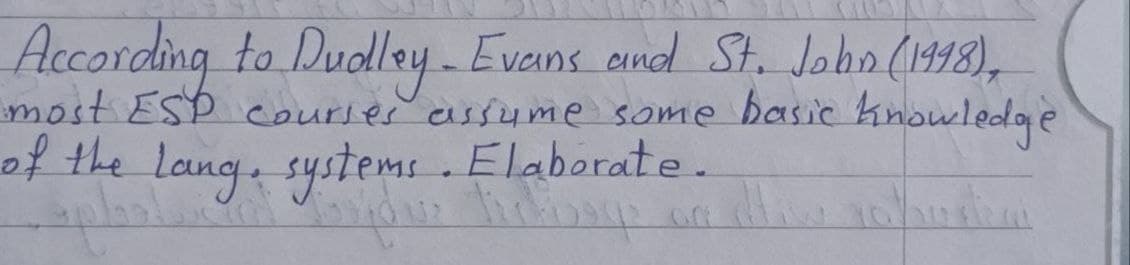 According to Dudley-Evans and St. John (1998),
most ESP courses assume some basic knowledge
of the lang. systems. Elaborate.